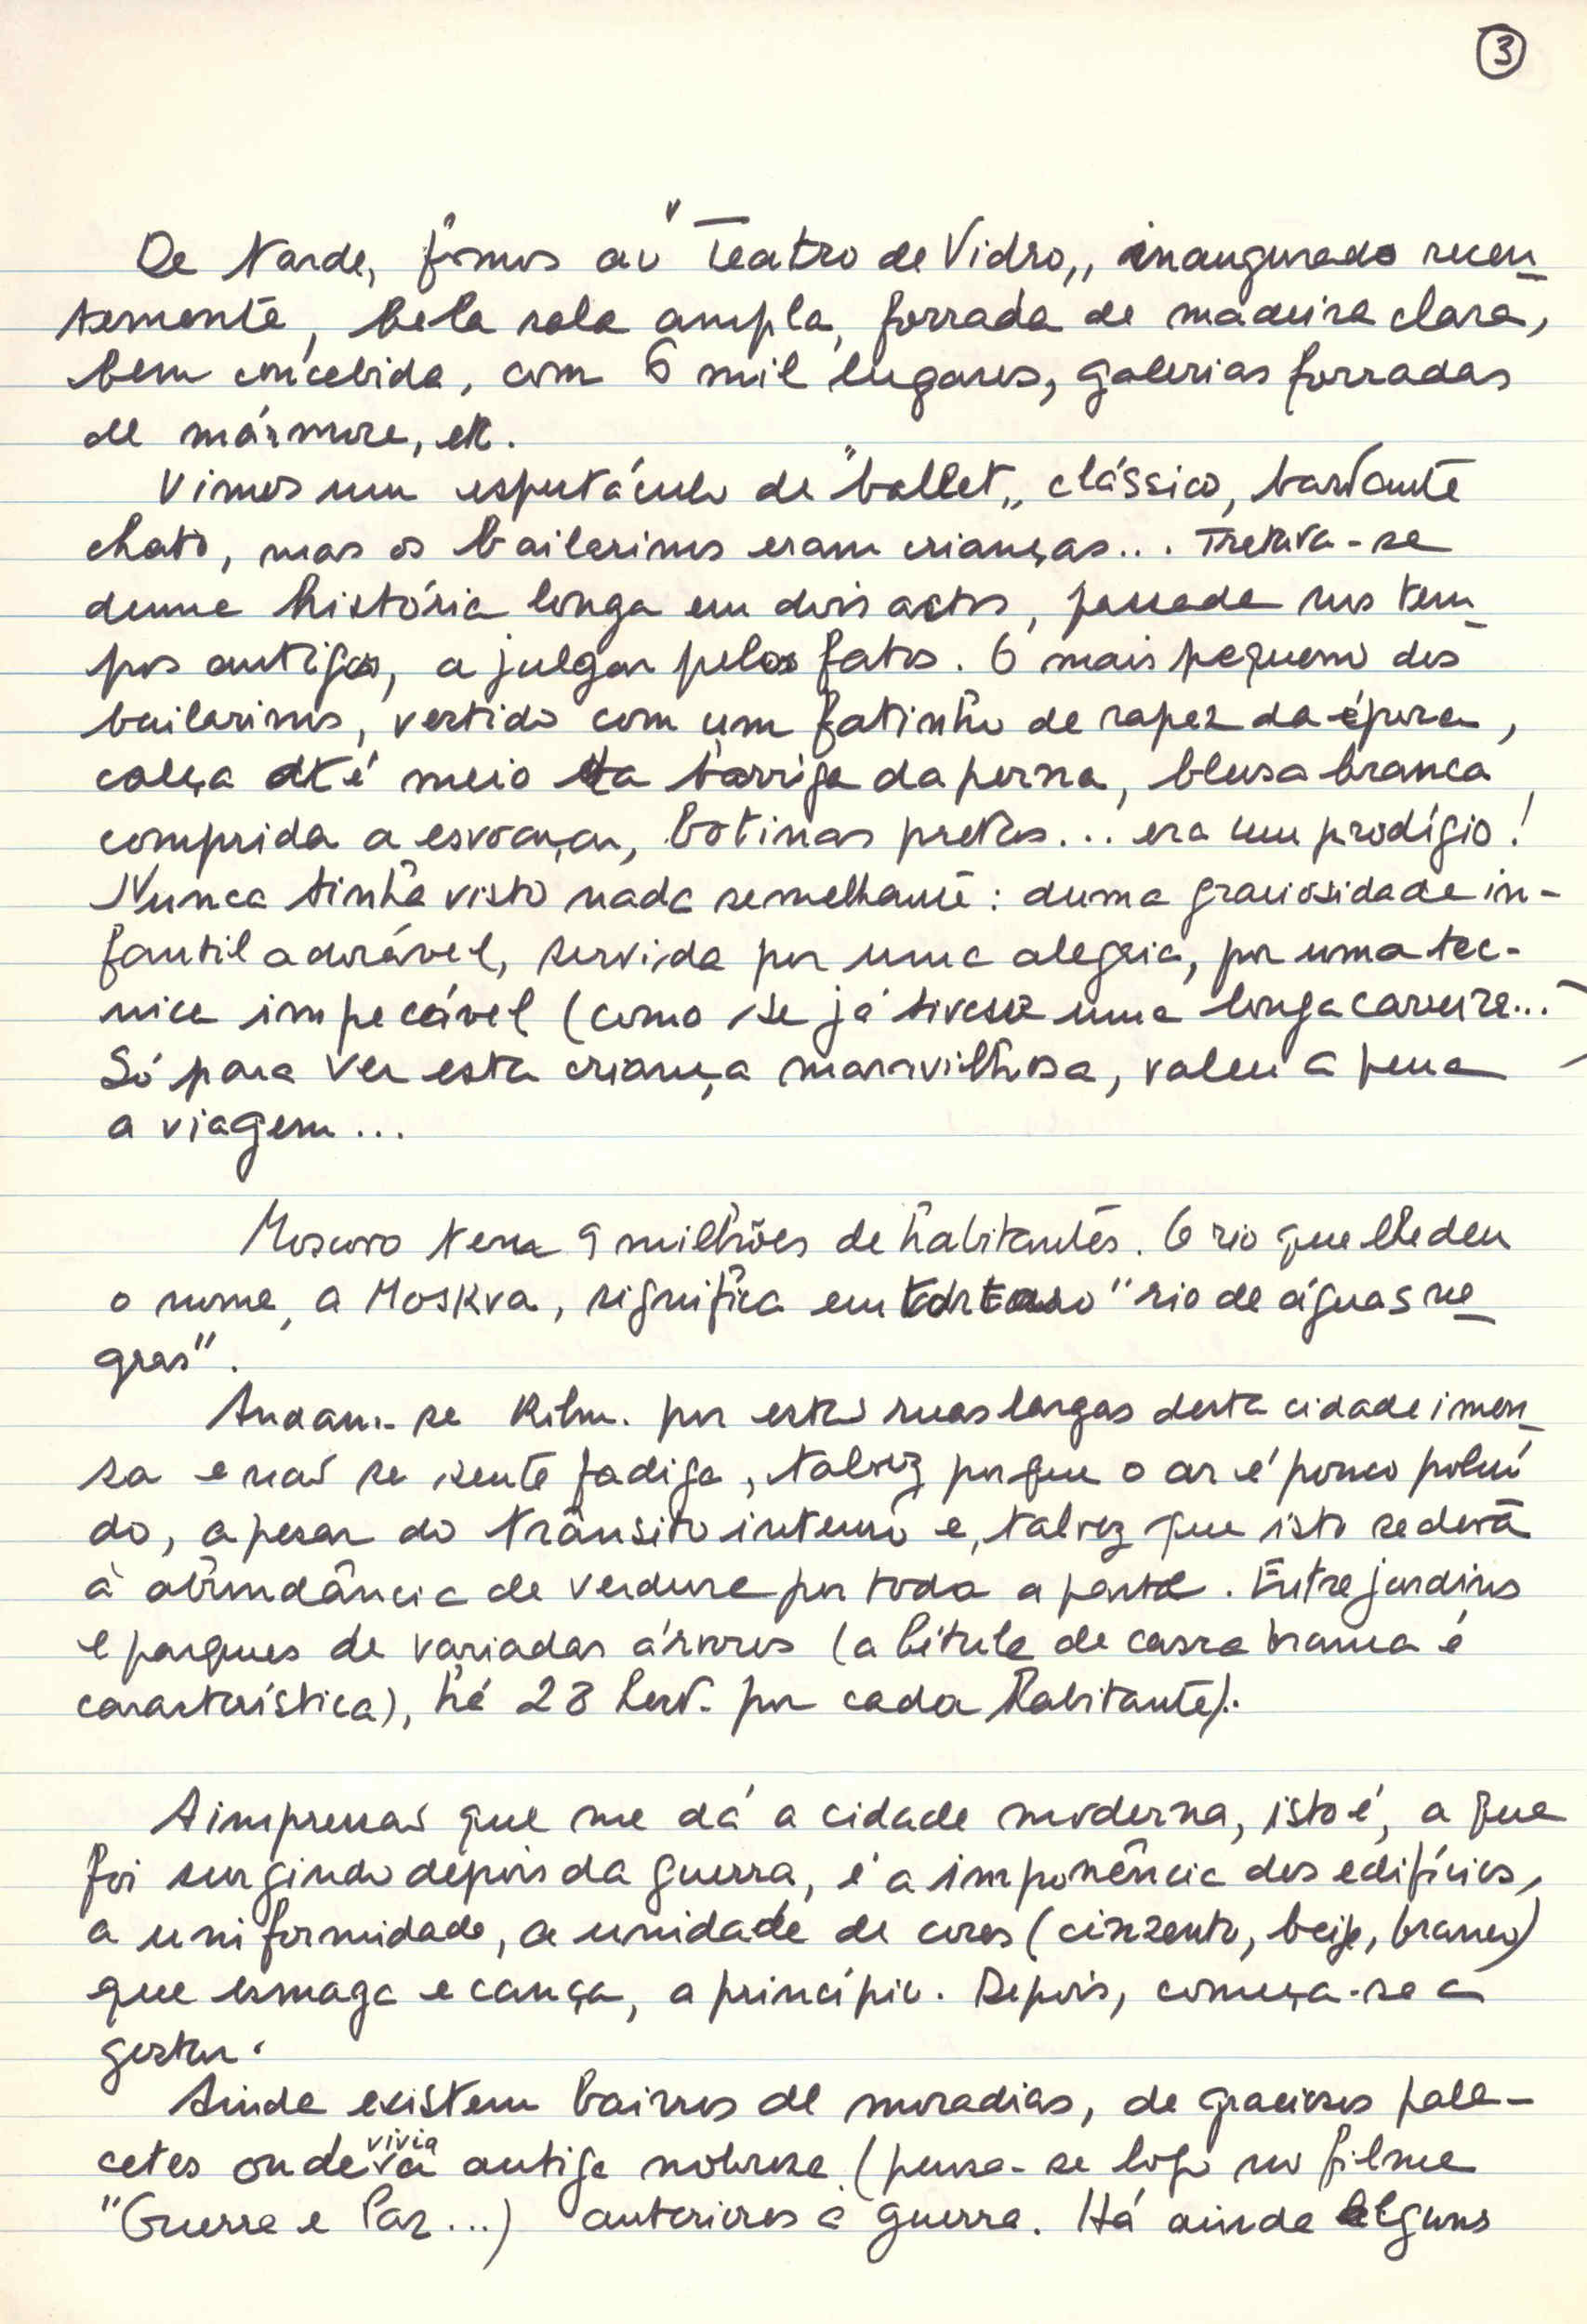 3
De tarde, fomos ao "Teatro de Vidro,, inaugurado recen
temente, bela sala ampla, forrada de madeira clara,
bem concebida, com 6 mil lugares, galerias forradas
de mármore, etc.
Vimos um espectáculo de "ballet,, clássico, bastante
chato, mas os bailarinos eram crianças... Tratava-se
duma história longa em dois actos, passada nos tem
pos antigos, a julgar pelos fatos. O mais pequeno dos
bailarinos, vestido com um fatinho de rapaz da época,
calça até meio da barriga da perna, blusa branca
comprida a esvoaçar, botinas pretas... era um prodígio!
Nunca tinha visto nada semelhante: duma graciosidade in-
fantil adorável, servida por uma alegria, por uma tec-
nica impecável (como se já tivesse uma longa carreira...)
Só para ver esta criança maravilhosa, valeu a pena
a viagem...
Moscovo tem 9 milhões de habitantes. O rio que lhe deu
o nome, a Moskva, significa em tártaro "rio de águas ne
gras".
Andam-se kilm. por estas ruas largas desta cidade imen
sa e não se sente fadiga, talvez porque o ar é pouco poluí
do, apesar do trânsito intenso e, talvez que isto se deva
à abundância de verdura por toda a parte. Entre jardins
e parques de variadas árvores (a bétula de casca branca é
característica), há 28 hect. por cada habitante).
A impressão que me dá a cidade moderna, isto é, a que
foi surgindo depois da guerra, é a imponência dos edifícios,
a uniformidade, a unidade de cores (cinzento, beije, branco)
que esmaga e cança, a princípio. Depois, começa-se a
gostar.
Ainda existem bairros de moradias, de graciosos pala-
cetes onde vivia a antiga nobreza (pensa-se logo no filme
"Guerra e Paz...) anteriores à guerra. Há ainda alguns